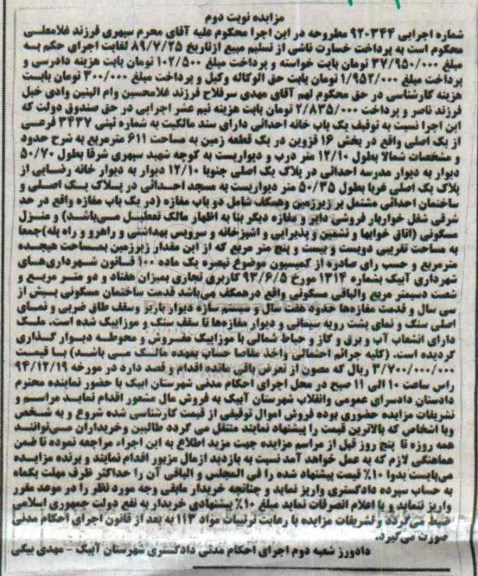 مزایده نوبت دوم
شماره اجرایی ۹۲۰۳۴۴ مطروحه در این اجرا محکوم علیه آقای محرم سپهری فرزند غلامعلی
محکوم است به پرداخت خسارت ناشی از تسلیم مبیع ازتاریخ ۸۹/۷/۲۵ لغایت اجرای حکم به
مبلغ ۳۷/۹۵۰/۰۰۰ تومان بابت خواسته و پرداخت مبلغ ۱۰۲/۵۰۰ تومان بابت هزینه دادرسی و
پرداخت مبلغ ۱/۹۵۲/۰۰۰ تومان بابت حق الوکاله وکیل و پرداخت مبلغ ۳۰۰/۰۰۰ تومان بابت
هزینه کارشناسی در حق محکوم لهم آقای مهدی سرفلاح فرزند غلامحسین وام البنین وادی خیل
فرزند ناصر و پرداخت ۲/۸۳۵/۰۰۰ تومان بابت هزینه نیم عشر اجرایی در حق صندوق دولت که
این اجرا نسبت به توقیف یک باب خانه احداثی دارای سند مالکیت به شماره ثبتی ۳۴۳۷ فرعی
از یک اصلی واقع در بخش ۱۶ قزوین در یک قطعه زمین به مساحت ۶۱۱ مترمربع به شرح حدود
و مشخصات شمالا بطول ۱۲/۱۰ متر درب و دیواریست به کوچه شهید سپهری شرقا بطول ۵۰/۷۰
دیوار به دیوار مدرسه احداثی در پلاک یک اصلی جنوبا ۱۲/۱۰ دیوار به دیوار خانه رضایی از
پلاک یک اصلی غربا بطول ۵۰/۳۵ متر دیواریست به مسجد احداثی در پلاک یک اصلی و
ساختمان احداثی مشتمل بر زیرزمین وهمکف شامل دو باب مغازه (در یک باب مغازه واقع در حد
شرقی شغل خواربار فروشی دایر و مغازه دیگر بنا به اظهار مالک تعطیل می‌باشد) و منزل
مسکونی (اتاق خوابها و نشیمن و پذیرایی و آشپزخانه و سرویس بهداشتی و راهرو و راه پله)جمعا
به مساحت تقریبی دویست و بیست و پنج متر مربع که از این مقدار زیرزمین بمساحت هیجده
مترمربع و حسب رای صادره از کمیسیون موضوع تبصره یک ماده ۱۰۰ قانون شهرداری‌های
شهرداری آبیک بشماره ۱۳۱۴ مورخ ۹۳/۶/۵ کاربری تجاری بمیزان هفتاد و دو متر مربع و
شصت دسیمتر مربع والباقی مسکونی واقع درهمکف می‌باشد قدمت ساختمان مسکونی بیش از
سی سال و قدمت مغازه‌ها حدود هفت سال و سیستم سازه دیوار باربر وسقف طاق ضربی و نمای
اصلی سنگ و نمای پشت رویه سیمانی و دیوار مغازه‌ها تا سقف سنگ و موزاییک شده است. ملک
دارای انشعاب آب و برق و گاز و حیاط شمالی با موزاییک مفروش و محوطه دیوار گذاری
گردیده است. (کلیه جرائم احتمالی واخذ مفاصا حساب بعهده مالک می باشد) با قیمت
۳/۷۰۰/۰۰۰/۰۰۰ ریال که مصون از تعرض باقی مانده اقدام و قصد دارد در مورخه ۹۴/۱۲/۱۹
راس ساعت ۱۰ الی ۱۱ صبح در محل اجرای احکام مدنی شهرستان آبیک با حضور نماینده محترم
دادستان دادسرای عمومی وانقلاب شهرستان آبیک به فروش مال مشعور اقدام نماید مراسم و
تشریفات مزایده حضوری بوده فروش اموال توقیفی از قیمت کارشناسی شده شروع و به شخص
ویا اشخاص که بالاترین قیمت را پیشنهاد نمایند منتقل می گردد طالبین وخریداران می‌توانند
همه روزه تا پنج روز قبل از مراسم مزایده جهت مزید اطلاع به این اجراء مراجعه نموده تا ضمن
هماهنگی لازم که به عمل خواهد آمد نسبت به بازدید ازمال مزبور اقدام نمایند و برنده مزایده
می‌بایست بدوا ۱۰٪ قیمت پیشنهاد شده را فی المجلس و الباقی آن را حداکثر ظرف مهلت یکماه
به حساب سپرده دادگستری واریز نماید و چنانچه خریدار مابقی وجه مورد نظر را در موعد مقرر
واریز ننماید و یا اعلام انصراف نماید مبلغ ۱۰٪ پیشنهادی خریدار به نفع دولت جمهوری اسلامی
ضبط می‌گردد وتشریفات مزایده با رعایت ترتیبات مواد ۱۱۳ به بعد از قانون اجرای احکام مدنی
صورت می‌گیرد.
دادورز شعبه دوم اجرای احکام مدنی دادگستری شهرستان آبیک - مهدی بیگی